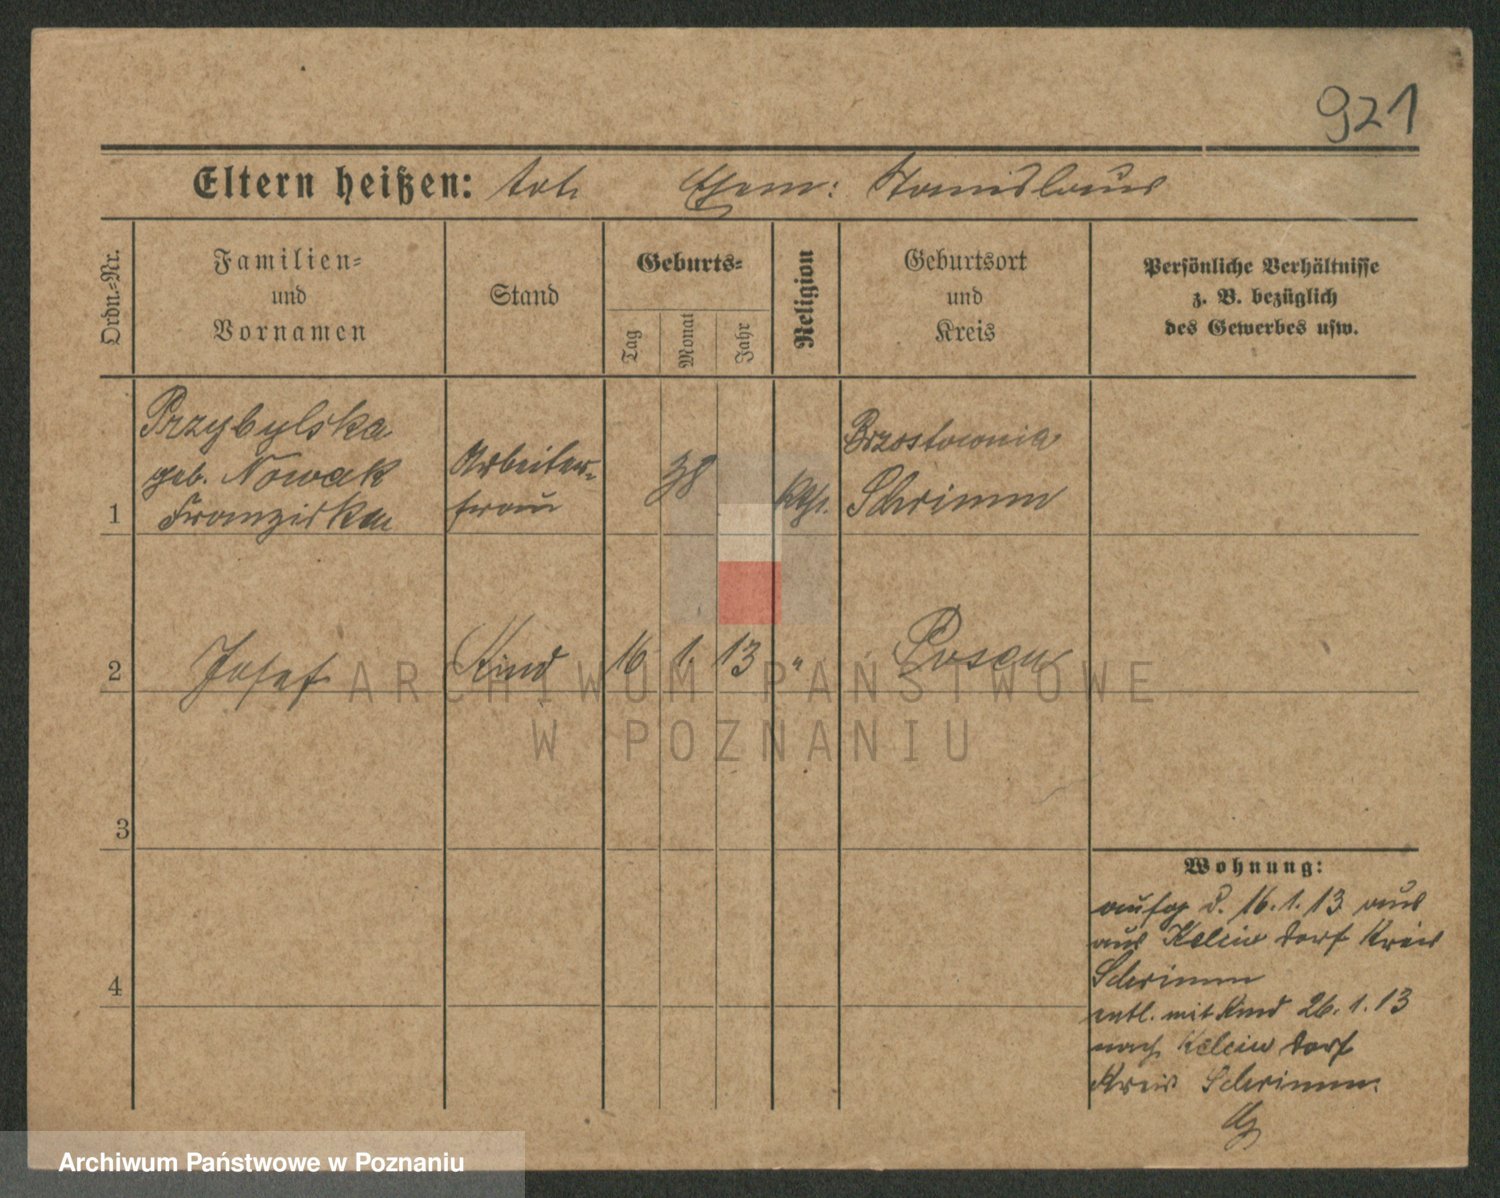 921
Eltern heißen: tot Ehem: Stanislaus
Ordn.-Nr.
Familien-
und
Vornamen
Stand
Geburts-
Tag
Monat
Jahr
Religion
Geburtsort
und
Kreis
Persönliche Verhältnisse
z. B. bezüglich
des Gewerbes usw.
1
Przybylska
geb. Nowak
Franziska
Arbeiter-
frau
38
kath.
Brzostownia
Schrimm
2
Josef
Kind
16
1.
13
"
Posen
3
4
Wohnung:
aufg d. 16.1.13 aus
aus dorf Kreis
Schrimm
entl. mit Kind 26.1.13
nach dorf
Kreis Schrimm.
ARCHIWUM PAŃSTWOWE
W POZNANIU
Archiwum Państwowe w Poznaniu